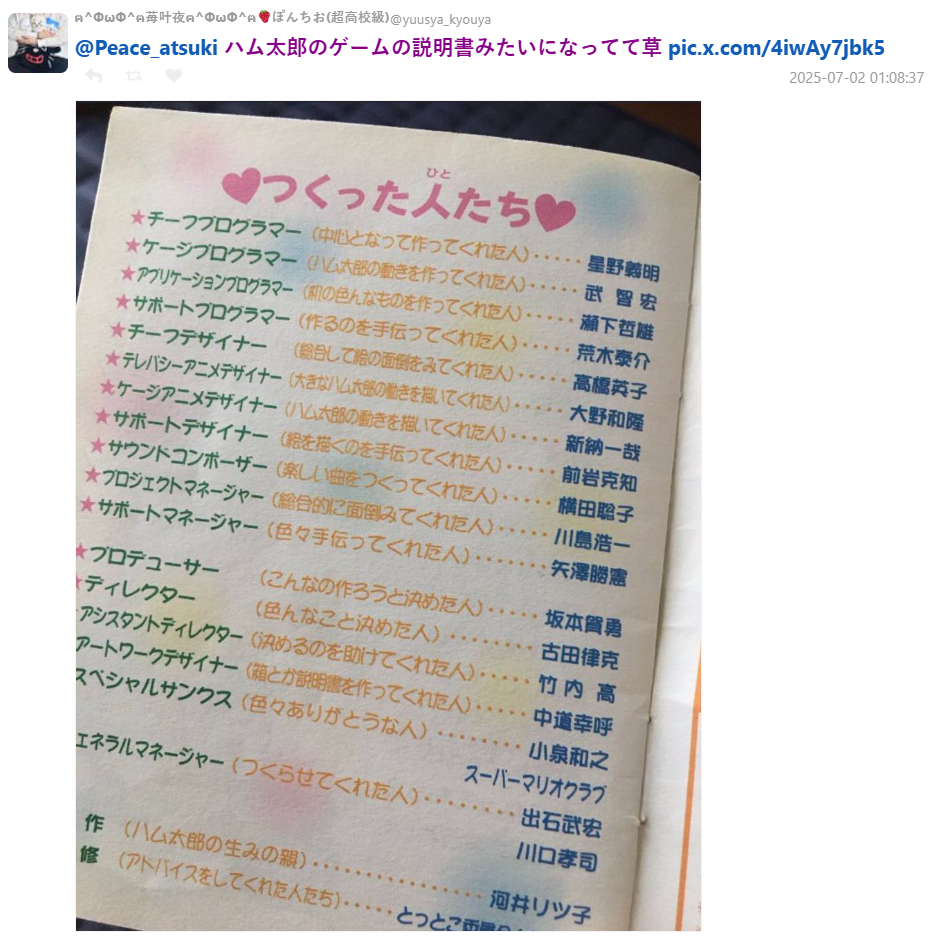 ฅ^ΦωΦ^ฅ苺叶夜ฅ^ΦωΦ^ฅ🍓ぽんちお(超高校級)@yuusya_kyouya
@Peace_atsuki ハム太郎のゲームの説明書みたいになってて草 pic.x.com/4iwAy7jbk5
2025-07-02 01:08:37
ひと
♥つくった人たち♥
★チーフプログラマー (中心となって作ってくれた人)・・・・・星野義明
★ケージプログラマー (ハム太郎の動きを作ってくれた人)・・・・・武智宏
★アプリケーションプログラマー (机の色んなものを作ってくれた人)・・・・・瀬下哲雄
★サポートプログラマー (作るのを手伝ってくれた人)・・・・・荒木泰介
★チーフデザイナー (総合して絵の面倒をみてくれた人)・・・・・高橋英子
★テレパシーアニメデザイナー (大きなハム太郎の動きを描いてくれた人)・・・・・大野和隆
★ケージアニメデザイナー (ハム太郎の動きを描いてくれた人)・・・・・新納一哉
★サポートデザイナー (絵を描くのを手伝ってくれた人)・・・・・前岩克知
★サウンドコンポーザー (楽しい曲をつくってくれた人)・・・・・横田聡子
★プロジェクトマネージャー (総合的に面倒みてくれた人)・・・・・川島浩一
★サポートマネージャー (色々手伝ってくれた人)・・・・・・矢澤勝憲
★プロデューサー (こんなの作ろうと決めた人)・・・・・坂本賀勇
★ディレクター (色んなこと決めた人)・・・・・・・・古田律克
アシスタントディレクター (決めるのを助けてくれた人)・・・・・竹内高
アートワークデザイナー (箱とか説明書を作ってくれた人)・・・・・中道幸呼
スペシャルサンクス (色々ありがとうな人)・・・・・・・・小泉和之
スーパーマリオクラブ
エネラルマネージャー (つくらせてくれた人)・・・・・・・・・出石武宏
川口孝司
作 (ハム太郎の生みの親)・・・・・・・・・・・・・・・河井リツ子
修 (アドバイスをしてくれた人たち)・・・・・とっとこ